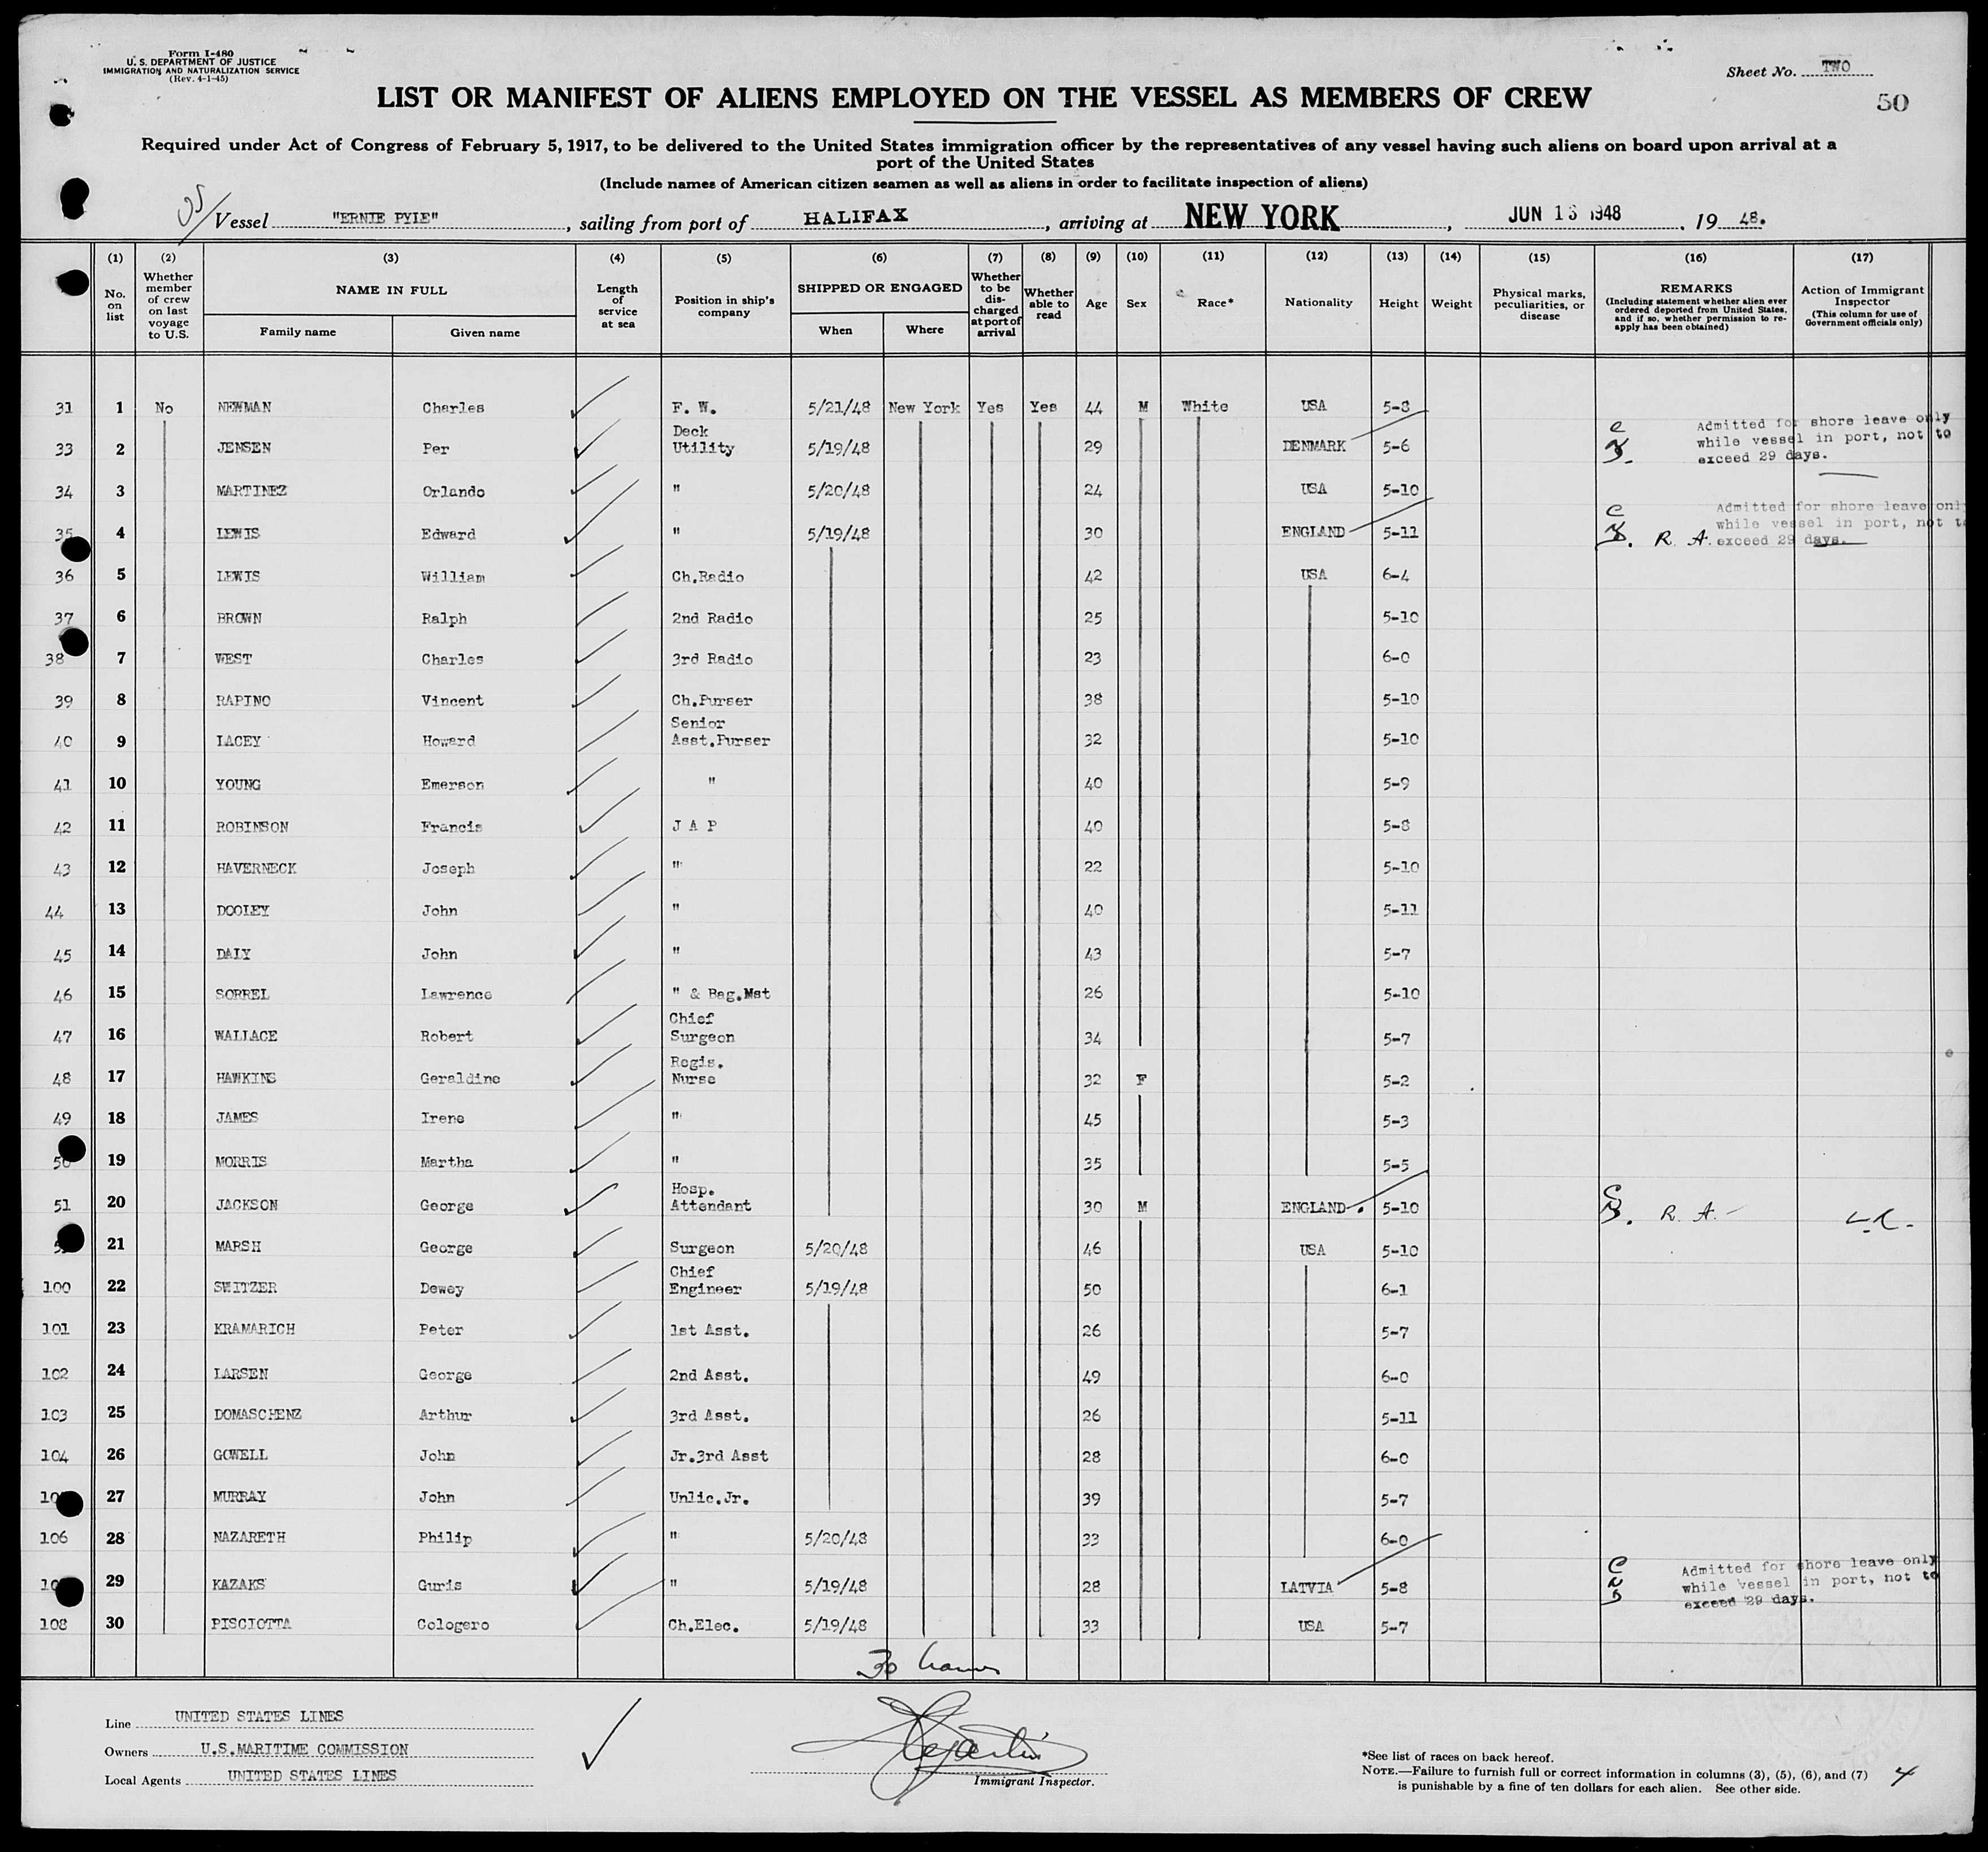 Form I-480
U. S. DEPARTMENT OF JUSTICE
IMMIGRATION AND NATURALIZATION SERVICE
(Rev. 4-1-45)
Sheet No. TWO
50
LIST OR MANIFEST OF ALIENS EMPLOYED ON THE VESSEL AS MEMBERS OF CREW
Required under Act of Congress of February 5, 1917, to be delivered to the United States immigration officer by the representatives of any vessel having such aliens on board upon arrival at a
port of the United States
(Include names of American citizen seamen as well as aliens in order to facilitate inspection of aliens)
Vessel "ERNIE PYLE", sailing from port of HALIFAX, arriving at NEW YORK, JUN 16 1948, 19 48.
(1) No. on list
(2) Whether member of crew on last voyage to U.S.
(3) NAME IN FULL Family name Given name
(4) Length of service at sea
(5) Position in ship's company
(6) SHIPPED OR ENGAGED When Where
(7) Whether to be discharged at port of arrival
(8) Whether able to read
(9) Age
(10) Sex
(11) Race*
(12) Nationality
(13) Height
(14) Weight
(15) Physical marks, peculiarities, or disease
(16) REMARKS (Including statement whether alien ever ordered deported from United States, and if so, whether permission to reapply has been obtained)
(17) Action of Immigrant Inspector (This column for use of Government officials only)
31 1 No NEWMAN Charles F. W. 5/21/48 New York Yes Yes 44 M White USA 5-8
33 2 JENSEN Per Deck Utility 5/19/48 29 DENMARK 5-6 Admitted for shore leave only while vessel in port, not to exceed 29 days.
34 3 MARTINEZ Orlando " 5/20/48 24 USA 5-10
35 4 LEWIS Edward " 5/19/48 30 ENGLAND 5-11 R. A. Admitted for shore leave only while vessel in port, not to exceed 29 days.
36 5 LEWIS William Ch.Radio 42 USA 6-4
37 6 BROWN Ralph 2nd Radio 25 5-10
38 7 WEST Charles 3rd Radio 23 6-0
39 8 RAPINO Vincent Ch.Purser 38 5-10
40 9 LACEY Howard Senior Asst.Purser 32 5-10
41 10 YOUNG Emerson " 40 5-9
42 11 ROBINSON Francis J A P 40 5-8
43 12 HAVERNECK Joseph " 22 5-10
44 13 DOOLEY John " 40 5-11
45 14 DALY John " 43 5-7
46 15 SORREL Lawrence " & Bag.Mst 26 5-10
47 16 WALLACE Robert Chief Surgeon 34 5-7
48 17 HAWKINS Geraldine Regis. Nurse 32 F 5-2
49 18 JAMES Irene " 45 5-3
50 19 MORRIS Martha " 35 5-5
51 20 JACKSON George Hosp. Attendant 30 M ENGLAND. 5-10 R. A.
21 MARSH George Surgeon 5/20/48 46 USA 5-10
100 22 SWITZER Dewey Chief Engineer 5/19/48 50 6-1
101 23 KRAMARICH Peter 1st Asst. 26 5-7
102 24 LARSEN George 2nd Asst. 49 6-0
103 25 DOMASCHENZ Arthur 3rd Asst. 26 5-11
104 26 GOWELL John Jr.3rd Asst 28 6-0
27 MURRAY John Unlic.Jr. 39 5-7
106 28 NAZARETH Philip " 5/20/48 33 6-0
29 KAZAKS Guris " 5/19/48 28 LATVIA 5-8 Admitted for shore leave only while vessel in port, not to exceed 29 days.
108 30 PISCIOTTA Cologero Ch.Elec. 5/19/48 33 USA 5-7
30
Line UNITED STATES LINES
Owners U.S.MARITIME COMMISSION
Local Agents UNITED STATES LINES
Immigrant Inspector.
*See list of races on back hereof.
NOTE.—Failure to furnish full or correct information in columns (3), (5), (6), and (7)
is punishable by a fine of ten dollars for each alien. See other side.
4